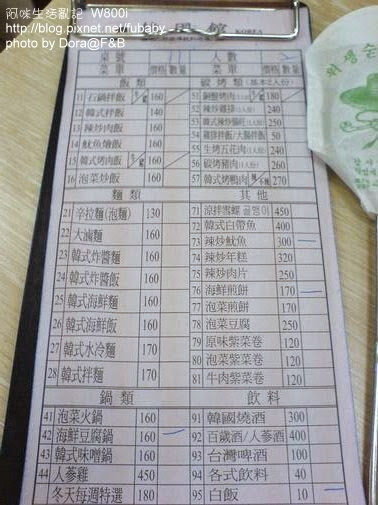 阿咪生活亂記 W800i
http://blog.roodo.com/fubaby
photo by Dora@F&B
館 KOREA
桌號 11 人數 2
菜單 價格 數量 菜單 價格 數量
飯類 碳烤類(基本2人份)
11 石鍋拌飯 160 51 銅盤烤肉 180
12 韓式拌飯 140 52 辣炒雞排(2人份) 240
13 辣炒肉飯 160 53 辣炒豬肉(2人份) 240
14 魷魚燴飯 160 54 240
15 韓式烤肉飯 160 55 生烤五花肉(2人份) 240
16 泡菜炒飯 160 56 碳烤豬肉(2人份) 260
麵類 57 韓式烤鴨肉 270
其他
21 辛拉麵(泡麵) 130 71 涼拌雪螺 골뱅이 450
22 大滷麵 160 72 韓式白帶魚 400
23 韓式炸醬麵 160 73 辣炒魷魚 300
24 韓式炸醬飯 160 74 辣炒年糕 320
25 韓式海鮮麵 160 75 辣炒肉片 250
26 韓式海鮮飯 160 76 海鮮煎餅 170
27 韓式水冷麵 170 77 泡菜煎餅 170
28 韓式拌麵 170 78 泡菜豆腐 250
79 原味紫菜卷 120
80 泡菜紫菜卷 120
81 牛肉紫菜卷 120
鍋類 飲料
41 泡菜火鍋 160 91 韓國燒酒 300
42 海鮮豆腐鍋 160 92 百歲酒/人參酒 400
43 韓式味噌鍋 160 93 台灣啤酒 100
44 人參雞 450 94 各式飲料 40
冬天每週特選 180 95 白飯 10